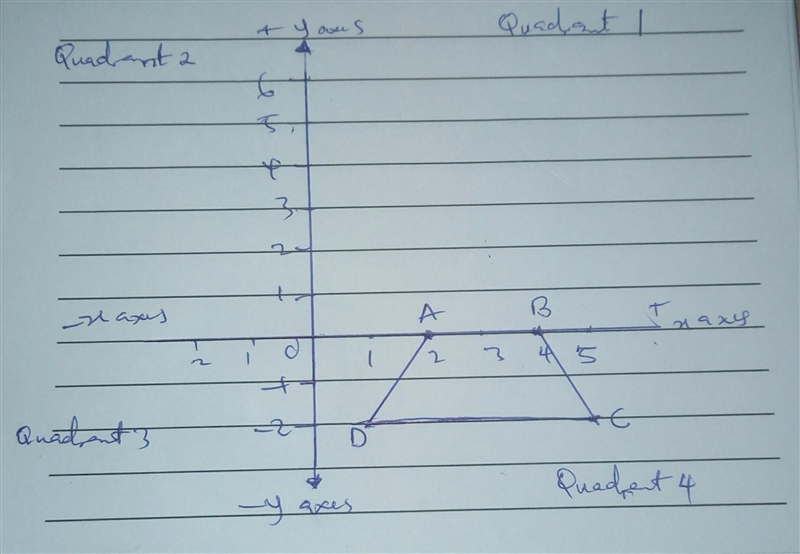 + y axes
Quadrant 1
Quadrant 2
6
5
4
3
2
1
-x axes
A
B
+
x axes
2 1 0 1 2 3 4 5
-1
-2
D
C
Quadrant 3
Quadrant 4
-y axes